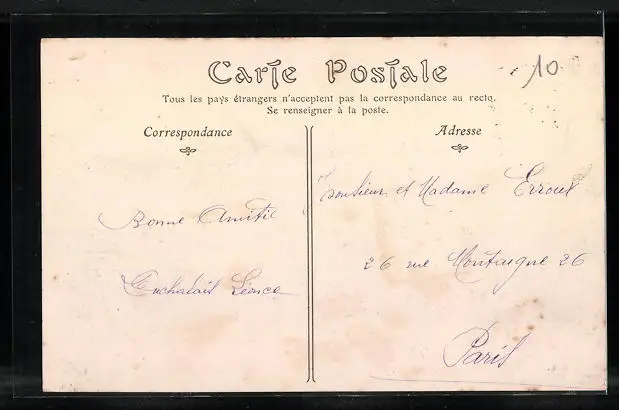 Carte Postale
10
Tous les pays étrangers n'acceptent pas la correspondance au recto.
Se renseigner à la poste.
Correspondance
Adresse
Monsieur et Madame Erroux
Bonne Amitié
26 rue Montaigne 26
Léonce
Paris